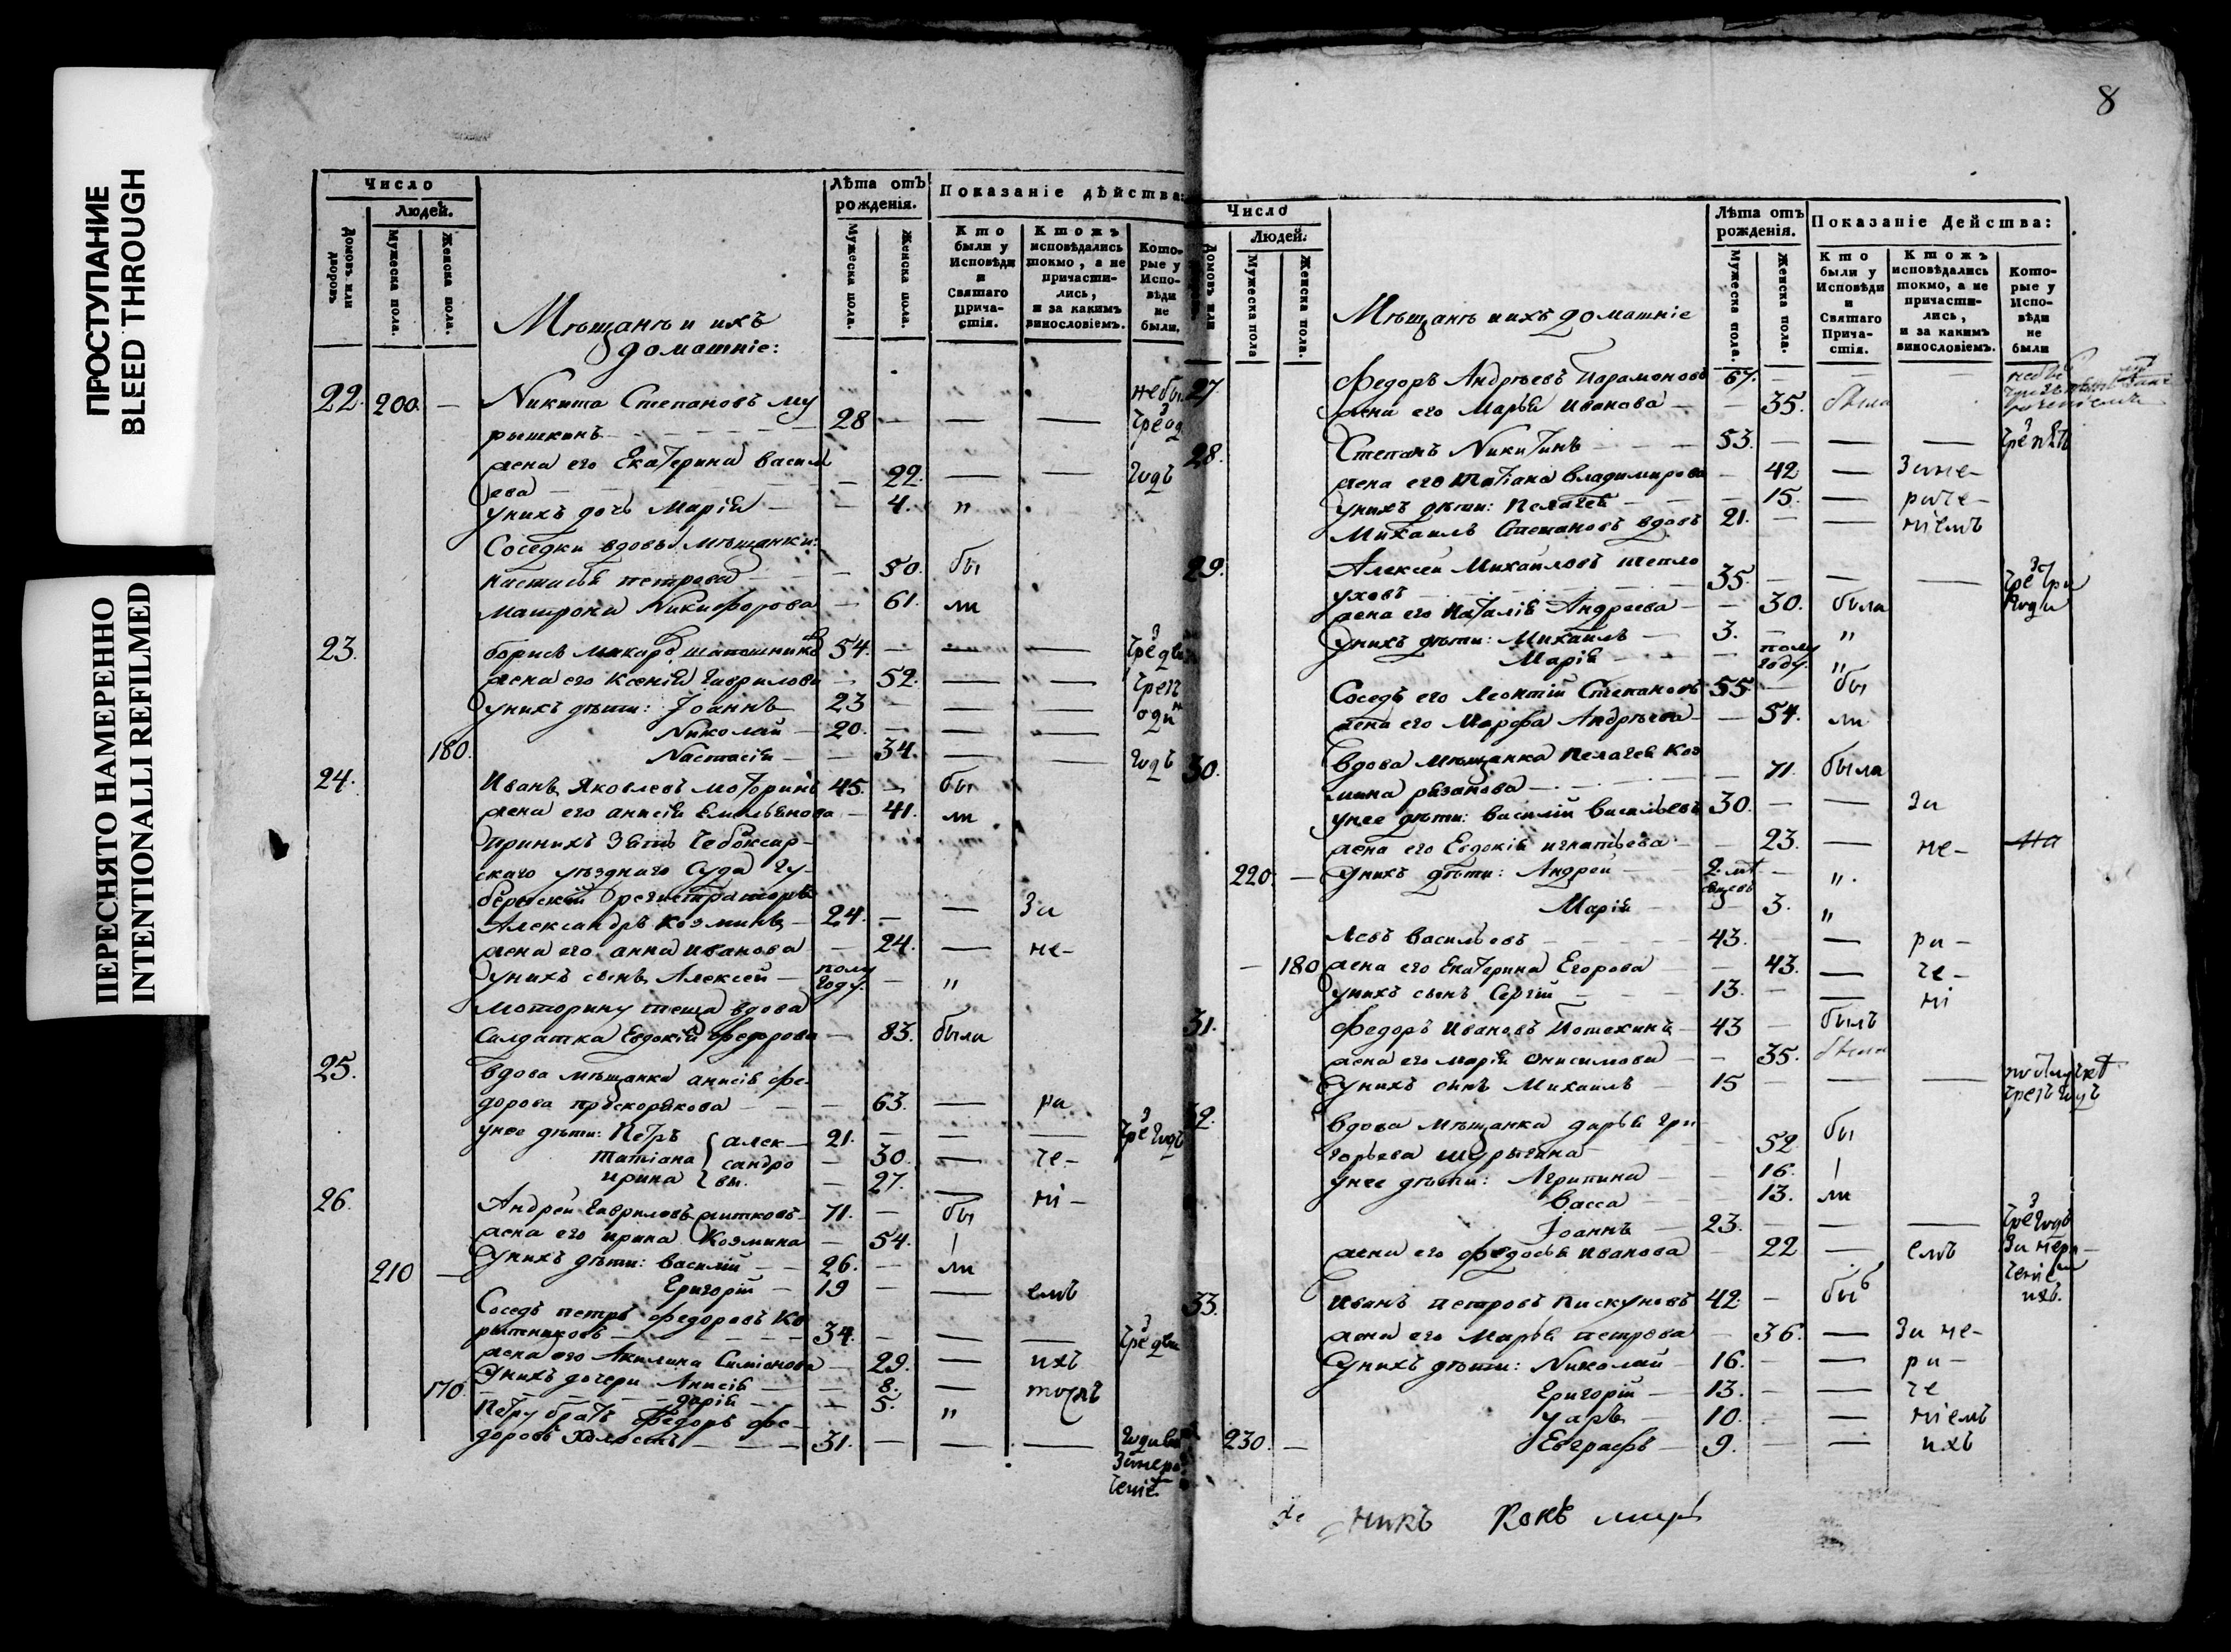 ПРОСТУПАНИЕ
BLEED THROUGH
ПЕРЕСНЯТО НАМЕРЕННО
INTENTIONALLI REFILMED
Число
Людей.
Домовъ или дворовъ
Мужеска пола.
Женска пола.
Лѣта отъ рожденія.
Мужеска пола.
Женска пола.
Показаніе дѣйства:
Кто были у Исповѣди и Святаго Прича-стія.
Ктожъ исповѣдались токмо, а не причасти-лись, и за какимъ винословіемъ.
Кото-рые у Испо-вѣди не были.
Мѣщанѣ и ихъ
домашніе:
22. 200. — Никита Степановъ му
рышкинъ 28 — — —
жена его Екатерина васил
ева — 22. — — годъ
у нихъ дочь Марія — 4. "
Соседки вдовы мѣщанки:
настасья петрова — 50. бы
матрона Никифорова — 61. ли
23. борисъ макаровъ шапошниковъ 54. — — —
жена его Ксенія гаврилова — 52. — —
у нихъ дѣти: Іоаннъ 23 — — —
Николай — 20. — — —
180. Настасія — 34. — — годъ
24. Иванъ Яковлевъ моторинъ 45. — бы
жена его анисія Емельянова — 41. ли
при нихъ зять Чебоксар-
скаго уѣзднаго Суда гу-
бернскій регистраторъ
Александръ козминъ — 24. — — За
жена его анна Иванова — 24. — не-
у нихъ сынъ Алексей — полу году. — "
моторину теща вдова
Салдатка Евдокія федорова — 83. была
25. вдова мѣщанка анисія фе-
дорова проскорякова — 63. — ра
у нее дѣти: Петръ алек- 21. — — — годъ
татіана сандро — 30. — че-
ирина вы. — 27. —
26. Андрей гавриловъ житковъ 71. — бы ні-
жена его ирина Козмина — 54.
210 — у нихъ дѣти: василій — 26. — ли
Григорій — 19 — — емъ
Соседъ петръ федоровъ Ко
рытниковъ 34. — — —
жена его Акилина Симіонова — 29. — ихъ
170. у нихъ дочери Анисія — 8. —
дарія — 5. "
Петру братъ Федоръ фе-
доровъ холостъ 31. — — —
8
Число
Людей.
Домовъ или
Мужеска пола
Женска пола.
Лѣта отъ рожденія.
Мужеска пола.
Женска пола.
Показаніе Действа:
Кто были у Исповѣди и Святаго Прича-стія.
Ктожъ исповѣдались токмо, а не причасти-лись, и за какимъ винословіемъ.
Кото-рые у Испо-вѣди не были
Мѣщанѣ и ихъ домашніе
27. Федоръ Андрѣевъ Парамоновъ 67. — — —
жена его Марья Иванова — 35. была
28. Степанъ Никитинъ 53. — — —
жена его Татіана владимирова — 42 — За не-
у нихъ дѣти: Пелагея — 15. — раче-
Михаилъ Степановъ вдовъ 21. — — ніемъ
29. Алексей Михайловъ тепло
уховъ 35. — — —
жена его Наталія Андреева — 30. была
у нихъ дѣти: Михаилъ — 3. — "
Марія — полу году. "
Соседъ его Леонтій Степановъ 55 — бы
жена его Марфа Андрѣева — 54. ли
30. вдова мѣщанка Пелагея Коз
мина рязанова — 71. была
у нее дѣти: василій васильевъ 30. — — За
жена его Евдокія игнатьева — 23. — не-
220. — у нихъ дѣти: Андрей — 2. — ".
Марія — 3. "
Левъ васильевъ 43. — — ра-
— 180 жена его Екатерина Егорова — 43. — че-
у нихъ сынъ Сергій 13. — — ні
31. Федоръ Ивановъ Потехинъ 43 — былъ
жена его марія Онисимова — 35. была
у нихъ сынъ Михаилъ — 15 — — —
32. вдова мѣщанка дарья гри
горьева шурыгина — 52. бы
у нее дѣти: Агрипина — 16.
васса — 13. ли
Іоаннъ — 23. — — —
жена его федосья Иванова — 22 — емъ
33. Иванъ петровъ пискуновъ 42. — бы
жена его Марья петрова — 36. — За не-
у нихъ дѣти: Николай — 16. — — ра-
Григорій — 13. — — че
уаръ 10. — — ніемъ
230. — Евграфъ — 9. — — ихъ